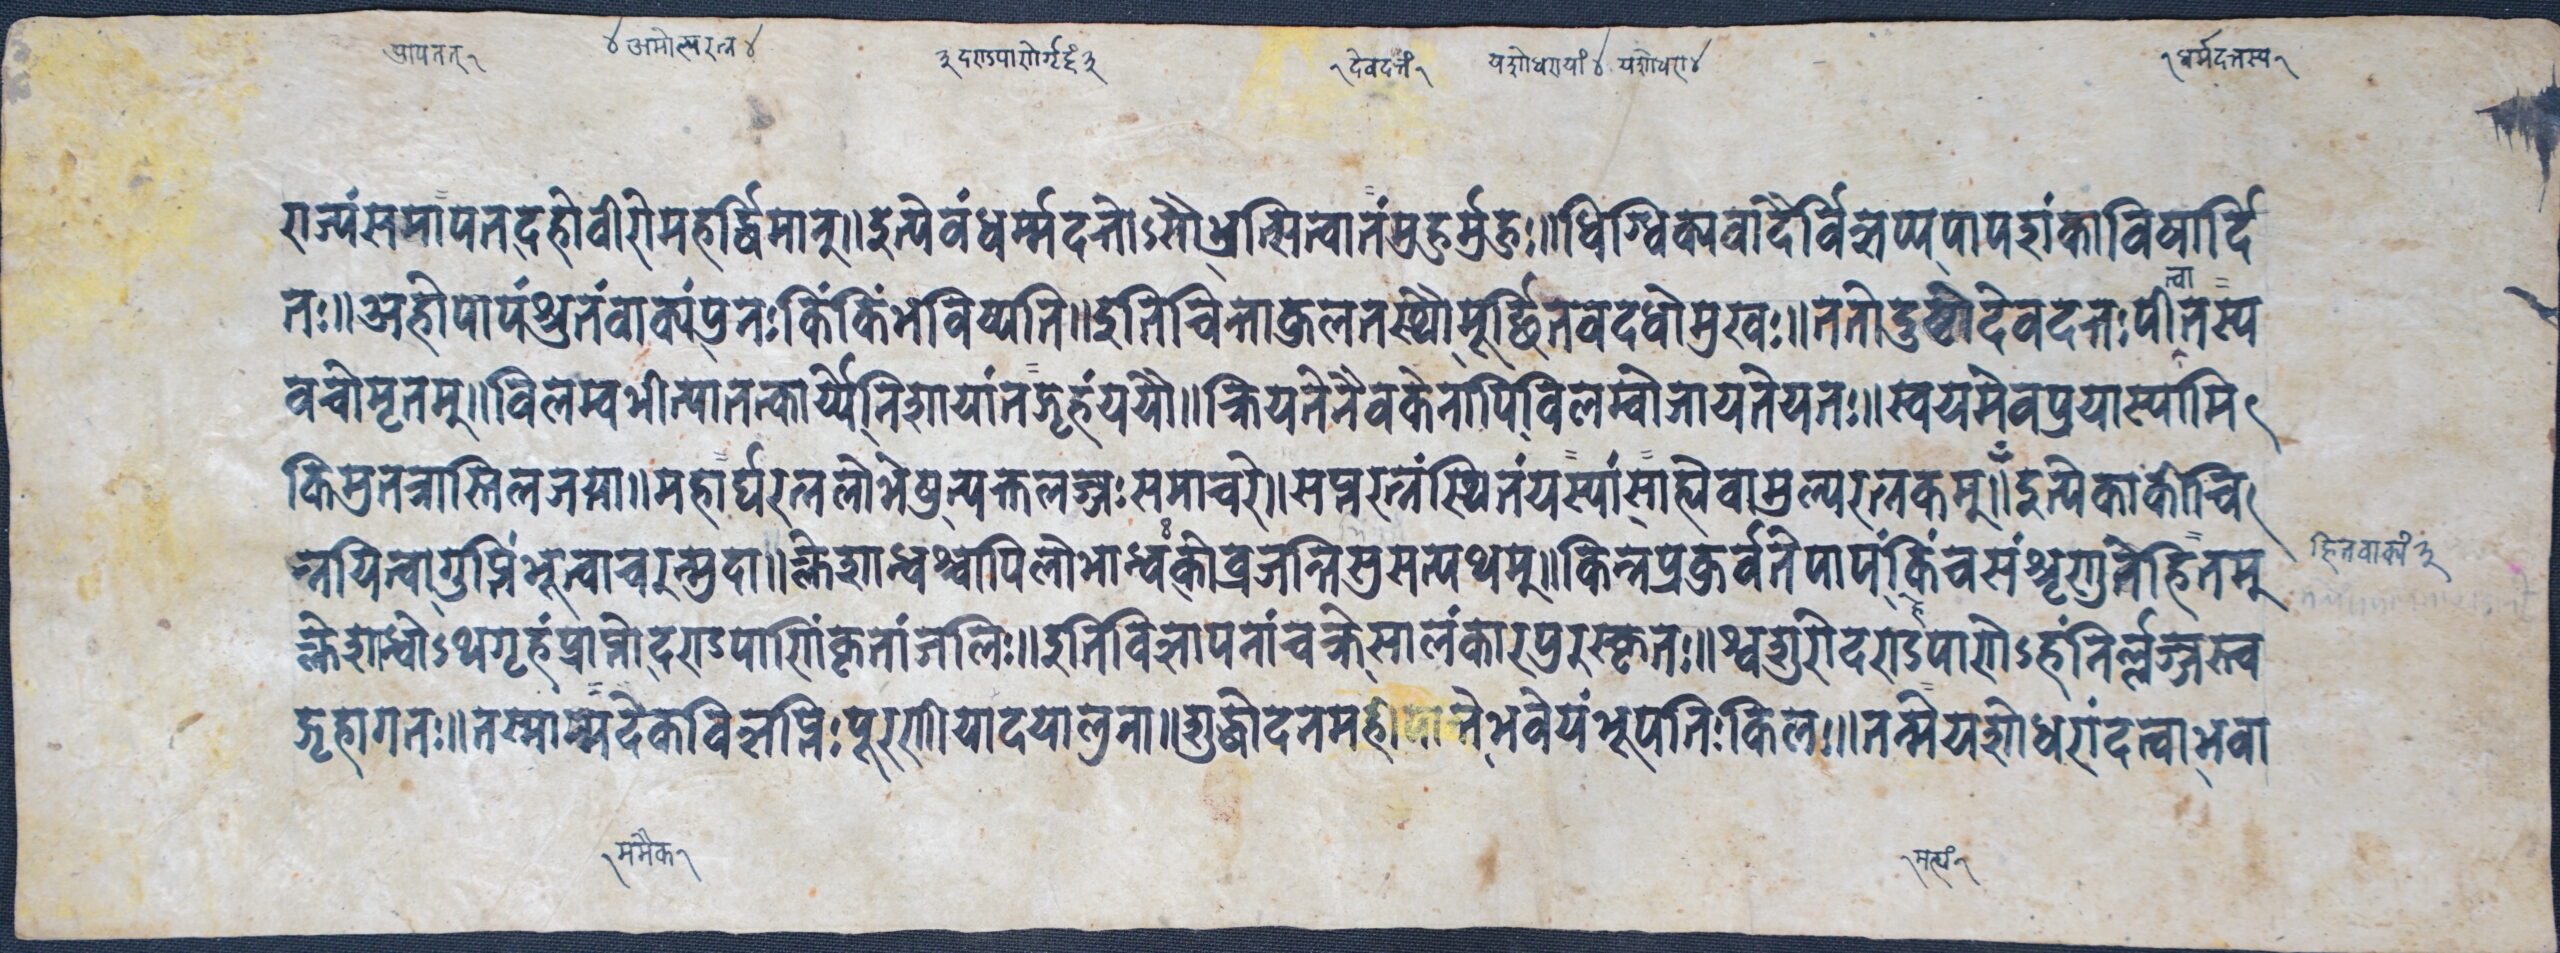 प्रापतत् १ ४ अमौल्यरत्न ४ ३ दराऽपाणेर्गृहं ३ १ देवदत्तं १ यशोधरायां ४ यशोधरा ४ १ धर्मदत्तस्य १
राज्यं समापतदहो वीरो महर्द्धिमान् ॥ इत्येवं धर्म्मदत्तोऽसौ भ्रत्सित्वा तं मुहुर्मुहुः ॥ धिग्धिक्यवादैर्विज्ञप्य पापशंकाविषार्दि
तः ॥ अहो पापं श्रुतं वाक्यं पुनः किं किं भविष्यति ॥ इति चिन्ताकुलतस्थौ मूर्च्छितवदधोमुखः ॥ ततो दुष्टो देवदत्तः पीत्वा तस्य
वचोमृतम् ॥ विलम्बभीत्या तत्कार्य्ये निशायां तद्गृहं ययौ ॥ क्रियते नैव केनापि विलम्बो जायते यतः ॥ स्वयमेव प्रयास्यामि
किमुत नास्ति लज्जया ॥ महार्घरत्नलोभेषु त्यक्तलज्जः समाचरे ॥ सप्तरत्नं स्थितं यस्यां साह्येवामुल्यरत्नकम् ॥ इत्येकाकी चि
न्तयित्वा गुप्तिं भूत्वाचरन्मुदा ॥ क्लेशान्धश्चापि लोभान्धः को व्रजन्ति सुसत्पथम् ॥ किन्न प्रकुर्वते पापं किं च संशृणुते हितम् हितवाक्यं ३
क्लेशान्धोऽथ गृहं प्राप्तो दराऽपाणिं कृतांजलिः ॥ इति विज्ञापनां चक्रे सालंकारपुरस्कृतः ॥ श्वशुरो दराऽपाणेऽहं निर्ल्लज्जस्त्व
द्गृहागतः ॥ तस्मान्मदेकविज्ञप्तिः पूरणीया दयालुना ॥ शुद्धोदनमहीपाले भवेयं भूपतिः किल ॥ तन्मे यशोधरां दत्वा भवा
१ ममैक १ १ मह्यं १